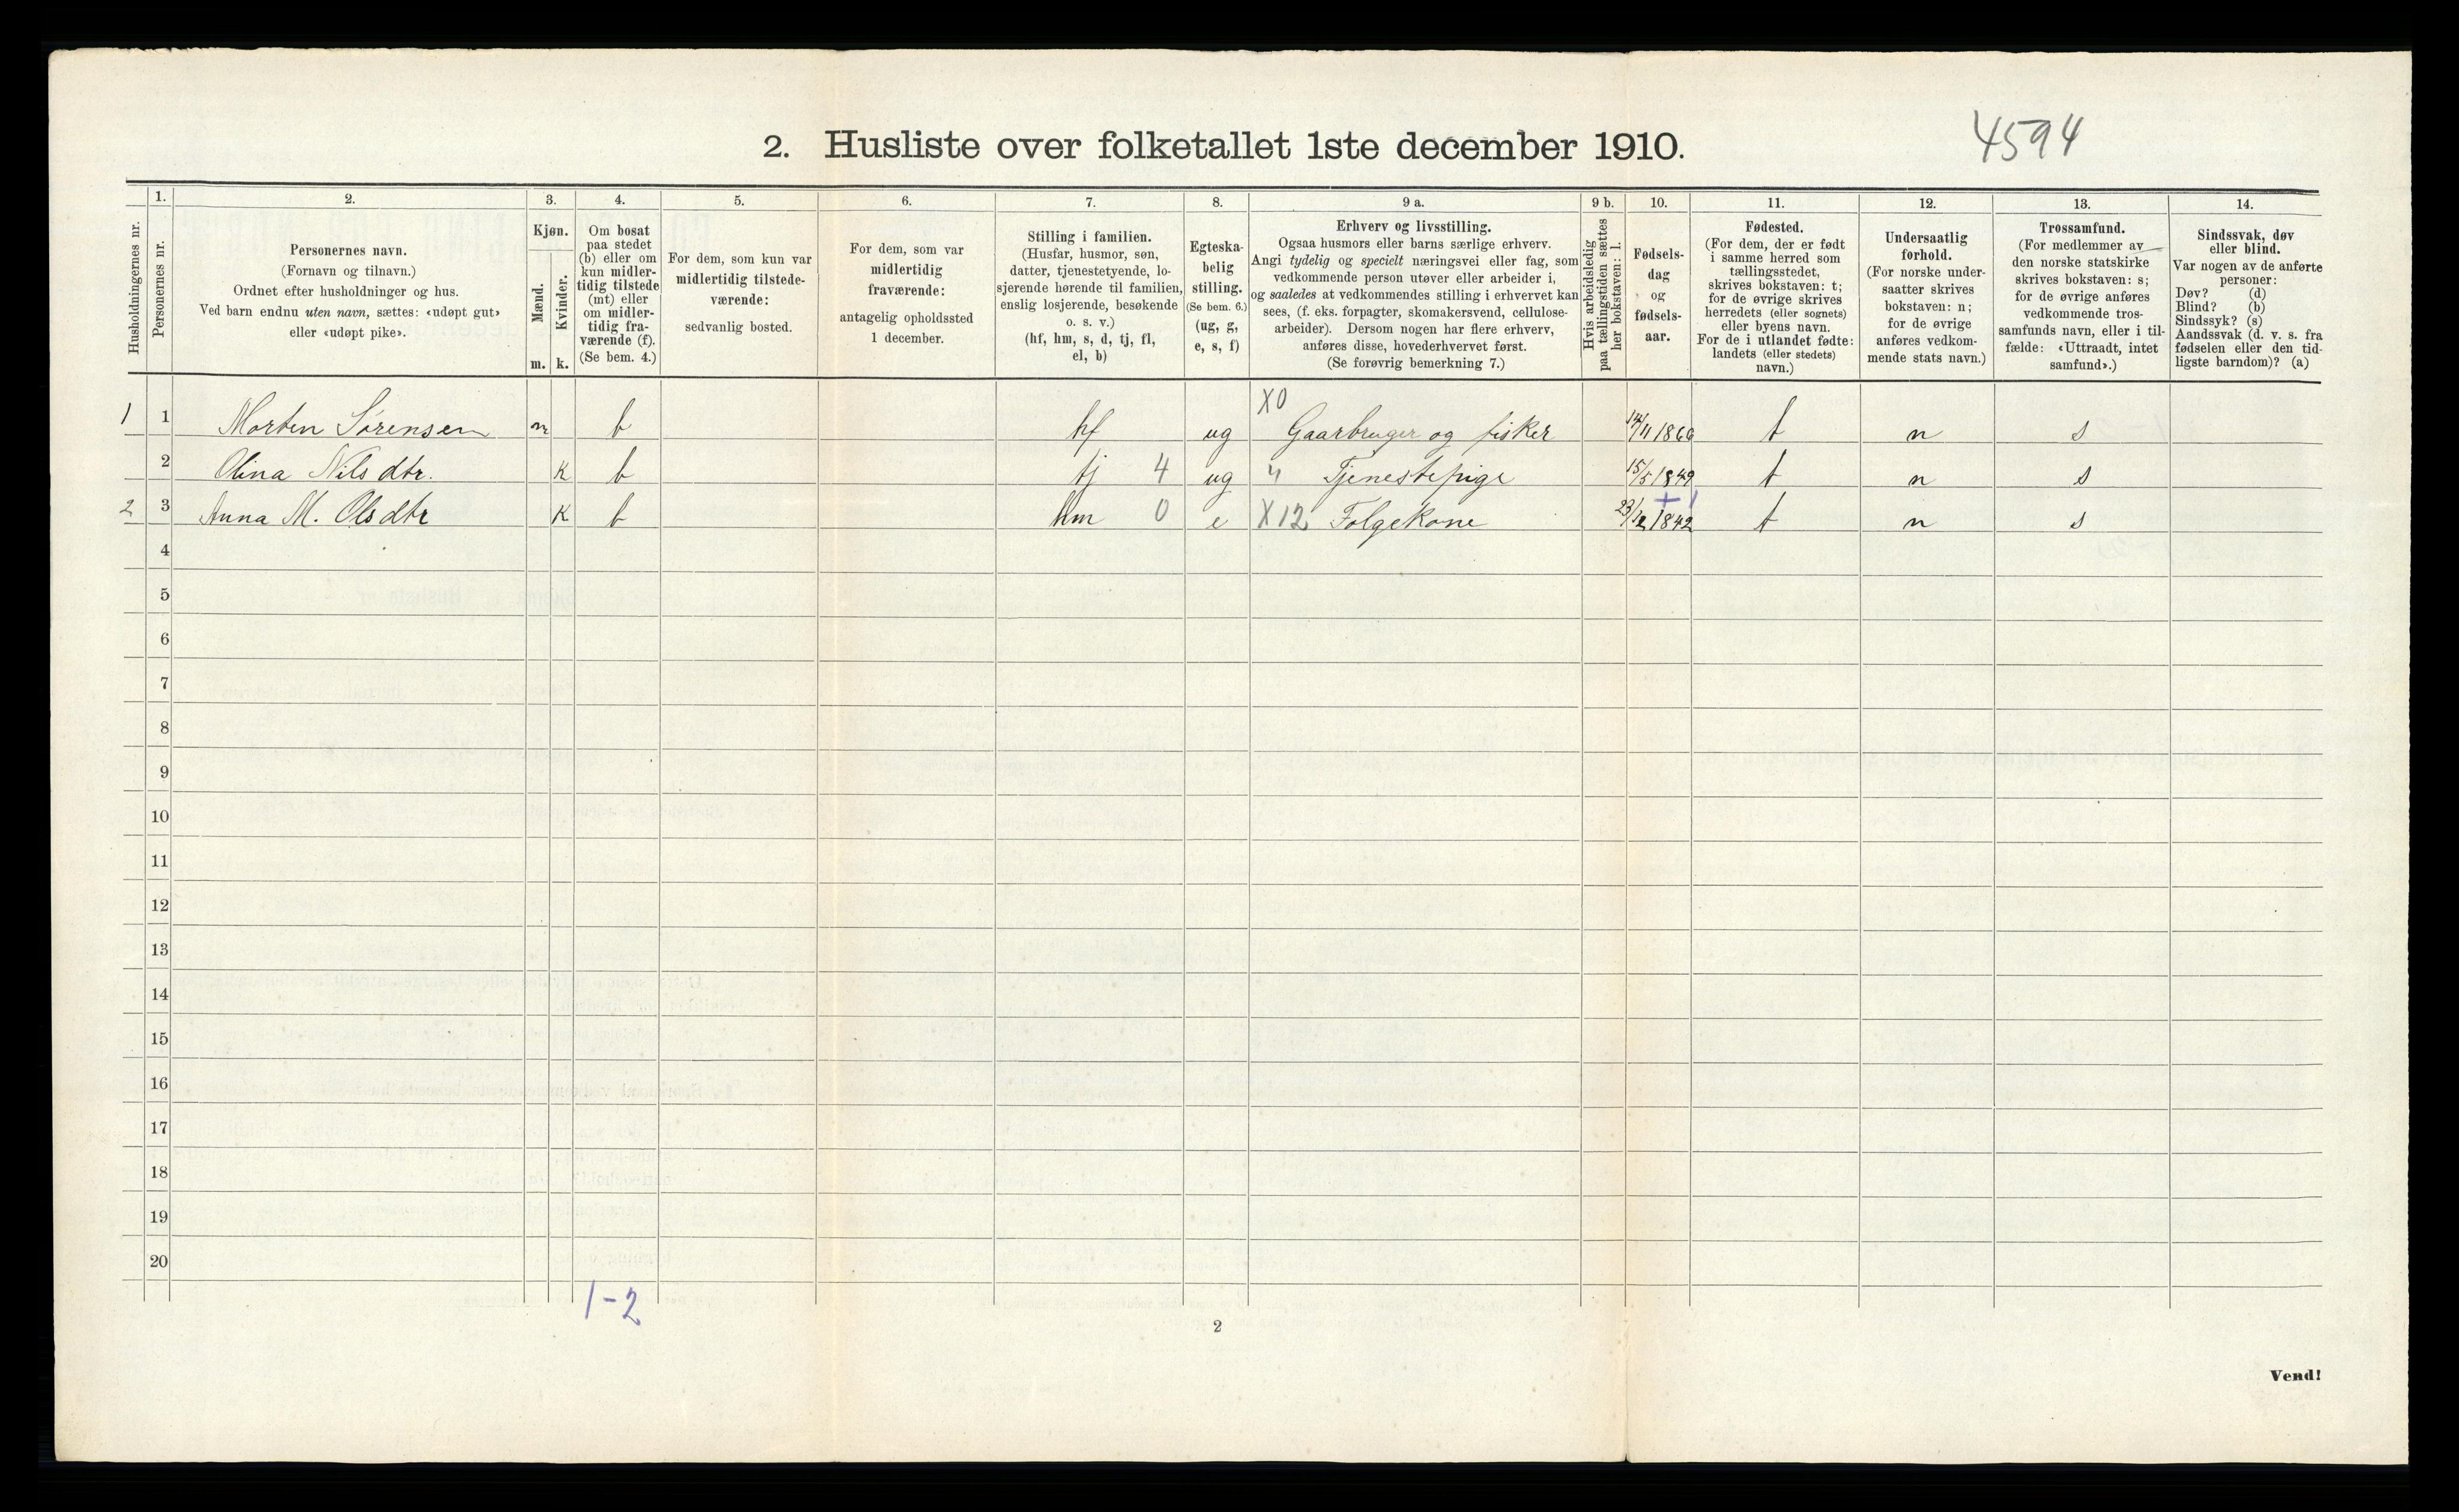 4594
2. Husliste over folketallet 1ste december 1910.
Husholdningernes nr.
1.
Personernes nr.
2.
Personernes navn.
(Fornavn og tilnavn.)
Ordnet efter husholdninger og hus.
Ved barn endnu uten navn, sættes: «udøpt gut»
eller «udøpt pike».
3.
Kjøn.
Mænd.
m.
Kvinder.
k.
4.
Om bosat
paa stedet
(b) eller om
kun midler-
tidig tilstede
(mt) eller
om midler-
tidig fra-
værende (f).
(Se bem. 4.)
5.
For dem, som kun var
midlertidig tilstede-
værende:
sedvanlig bosted.
6.
For dem, som var
midlertidig
fraværende:
antagelig opholdssted
1 december.
7.
Stilling i familien.
(Husfar, husmor, søn,
datter, tjenestetyende, lo-
sjerende hørende til familien,
enslig losjerende, besøkende
o. s. v.)
(hf, hm, s, d, tj, fl,
el, b)
8.
Egteska-
belig
stilling.
(Se bem. 6.)
(ug, g,
e, s, f)
9 a.
Erhverv og livsstilling.
Ogsaa husmors eller barns særlige erhverv.
Angi tydelig og specielt næringsvei eller fag, som
vedkommende person utøver eller arbeider i,
og saaledes at vedkommendes stilling i erhvervet kan
sees, (f. eks. forpagter, skomakersvend, cellulose-
arbeider). Dersom nogen har flere erhverv,
anføres disse, hovederhvervet først.
(Se forøvrig bemerkning 7.)
9 b.
Hvis arbeidsledig
paa tællingstiden sættes
her bokstaven: l.
10.
Fødsels-
dag
og
fødsels-
aar.
11.
Fødested.
(For dem, der er født
i samme herred som
tællingsstedet,
skrives bokstaven: t;
for de øvrige skrives
herredets (eller sognets)
eller byens navn.
For de i utlandet fødte:
landets (eller stedets)
navn.)
12.
Undersaatlig
forhold.
(For norske under-
saatter skrives
bokstaven: n;
for de øvrige
anføres vedkom-
mende stats navn.)
13.
Trossamfund.
(For medlemmer av
den norske statskirke
skrives bokstaven: s;
for de øvrige anføres
vedkommende tros-
samfunds navn, eller i til-
fælde: «Uttraadt, intet
samfund».)
14.
Sindssvak, døv
eller blind.
Var nogen av de anførte
personer:
Døv? (d)
Blind? (b)
Sindssyk? (s)
Aandssvak (d. v. s. fra
fødselen eller den tid-
ligste barndom)? (a)
X0
1 1 Morten Sørensen m b hf ug Gaarbruger og fisker 14/11 1866 t n s
2 Olina Nilsdtr. k b tj 4 ug " Tjenestepige 15/5 1849 t n s
2 3 Anna M. Olsdtr k b hm 0 e X12 Folgekone 23/12 1842 t n s
4
5
6
7
8
9
10
11
12
13
14
15
16
17
18
19
20
1-2
2
Vend!